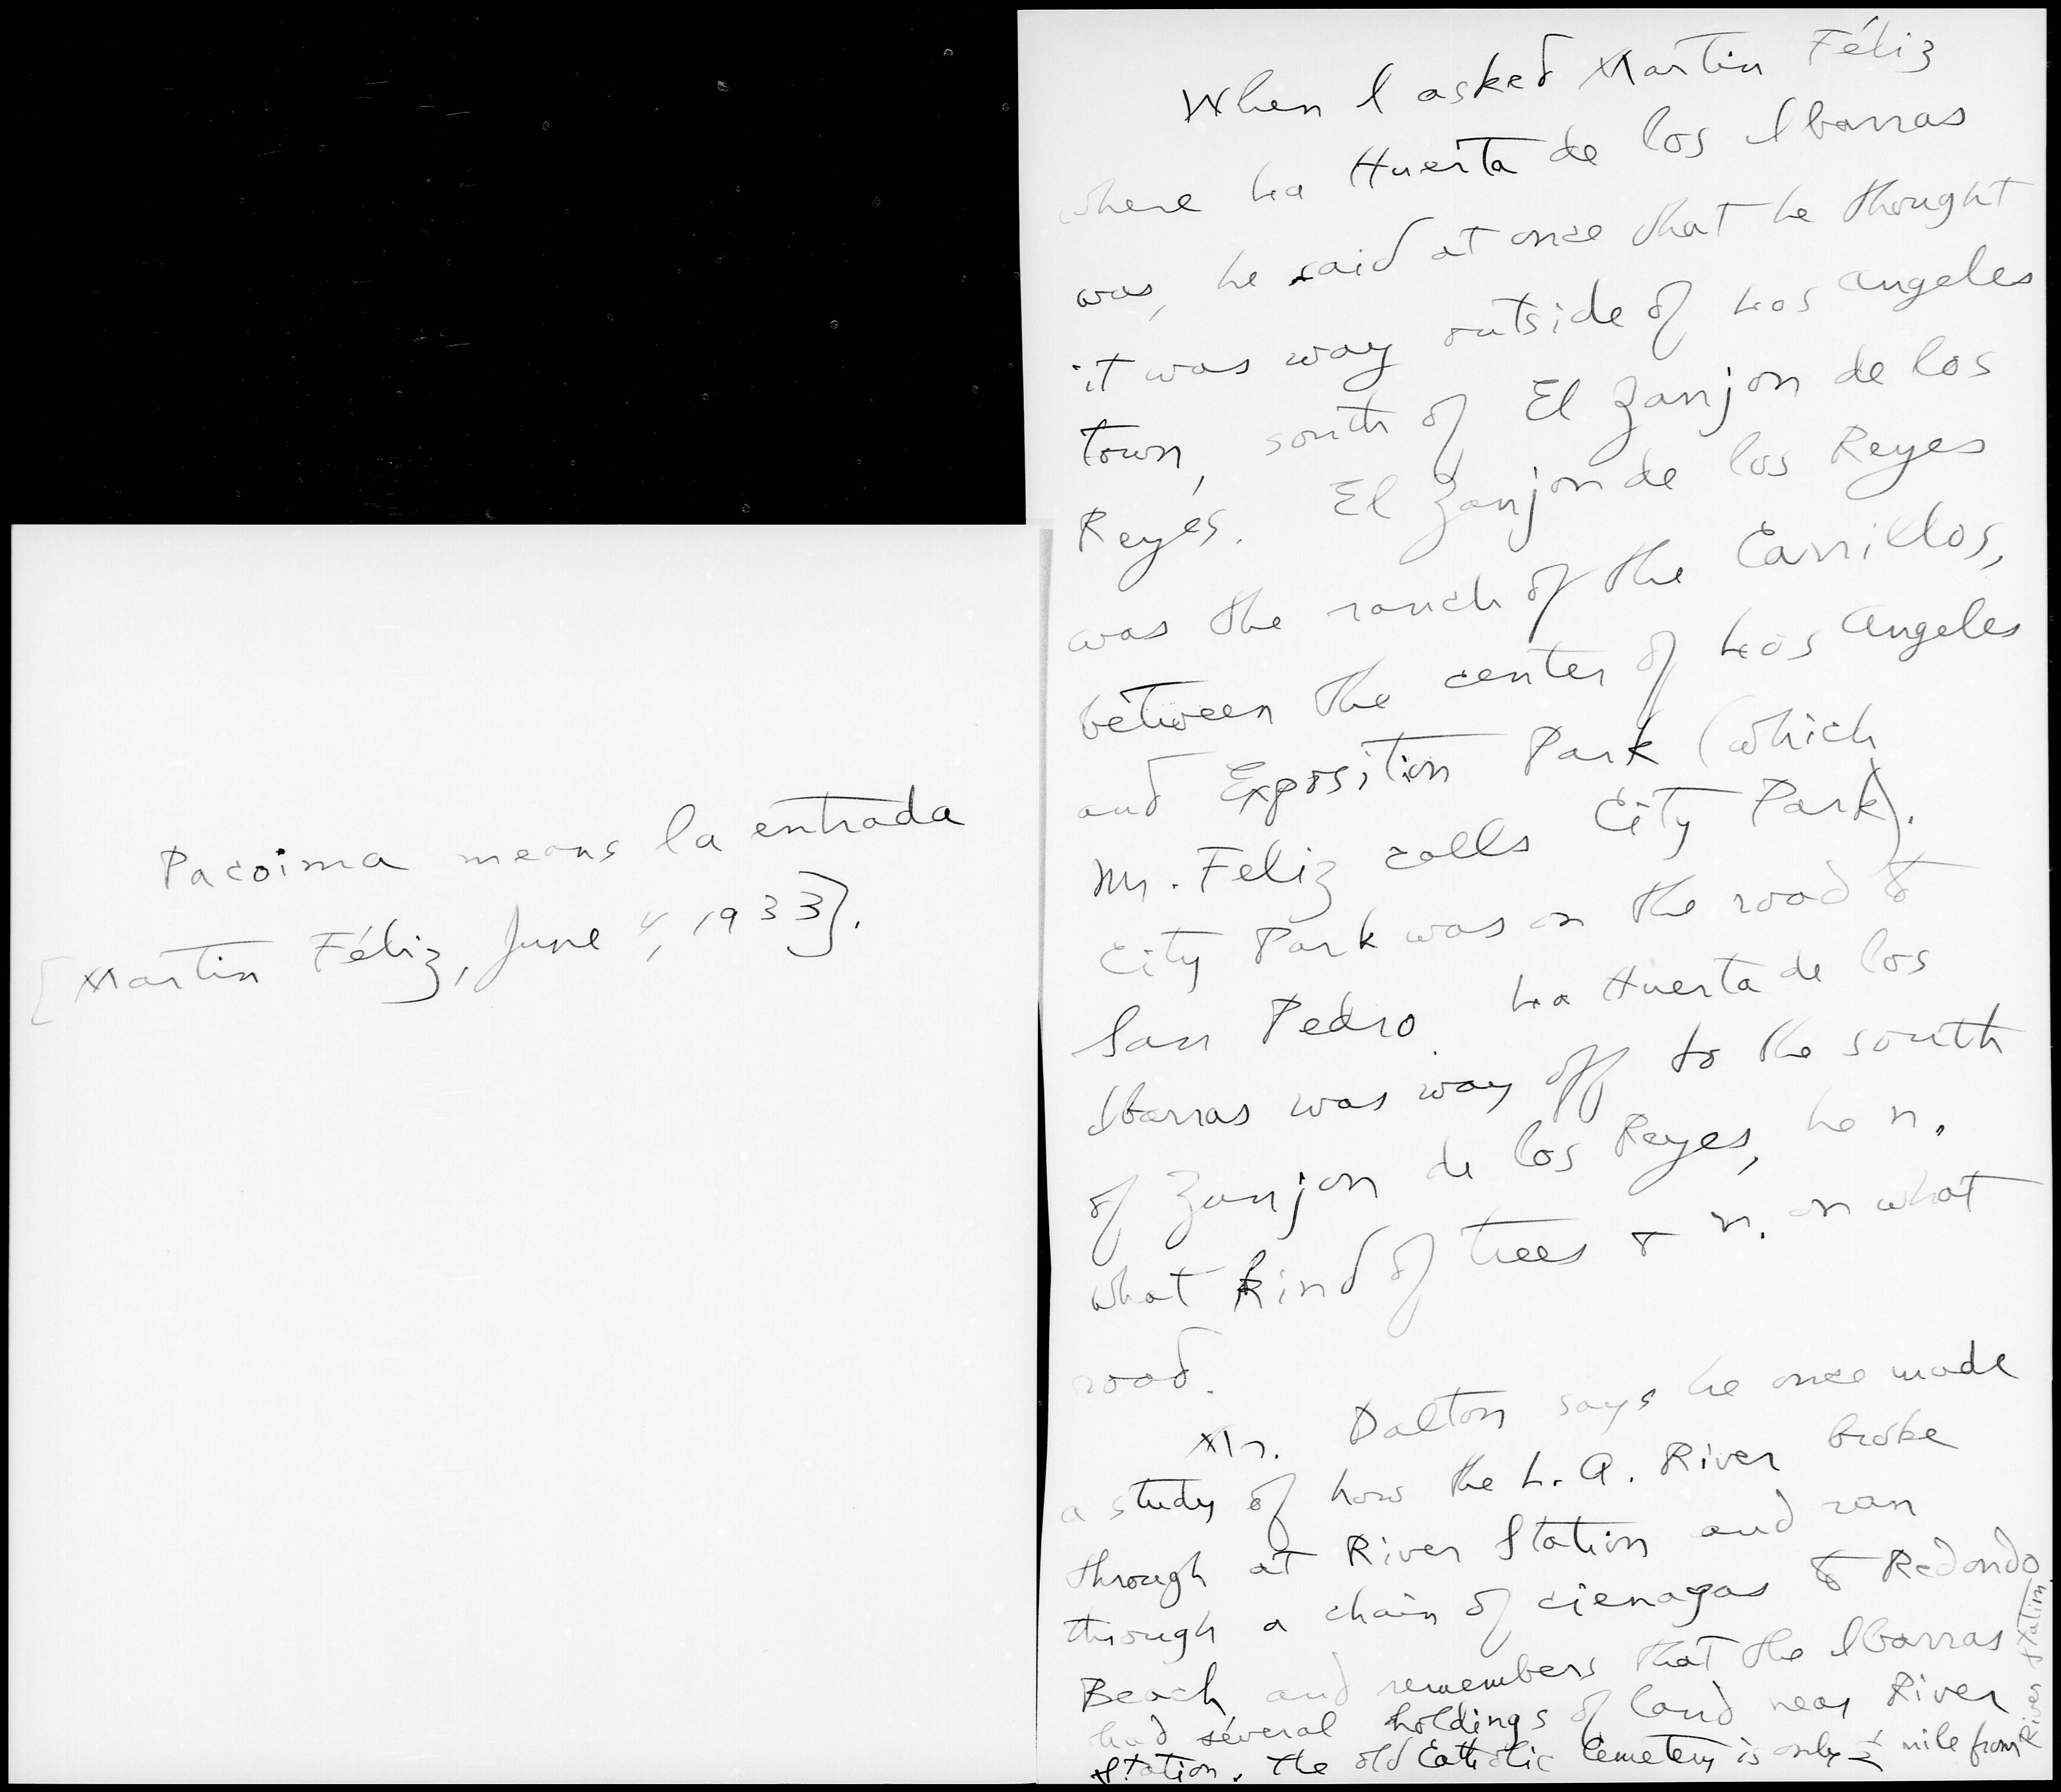 Pacoima means la entrada
[Martin Féliz, June 4, 1933].
When I asked Martin Féliz
where La Huerta de los Ibarras
was, he said at once that he thought
it was way outside of Los Angeles
town, south of El Zanjon de los
Reyes. El Zanjon de los Reyes
was the ranch of the Carrillos,
between the center of Los Angeles
and Exposition Park (which
Mr. Feliz calls City Park).
City Park was on the road to
San Pedro. La Huerta de los
Ibarras was way off to the south
of Zanjon de los Reyes, he n.
what kind of trees & n. on what
road.
Mr. Dalton says he once made
a study of how the L.A. River broke
through at River Station and ran
through a chain of cienagas to Redondo
Beach and remembers that the Ibarras
had several holdings of land near River
Station. The old Catholic Cemetery is only ½ mile from
River Station.